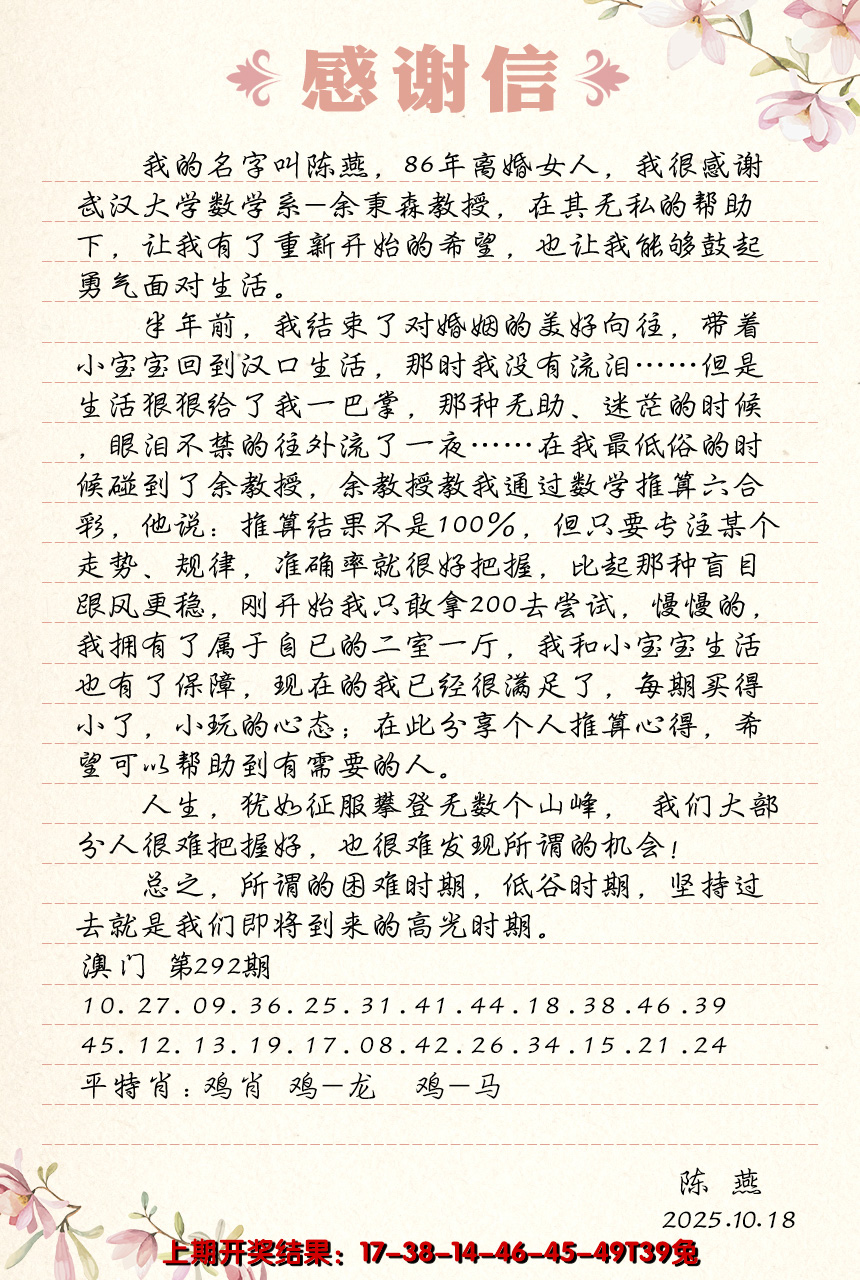 感谢信
我的名字叫陈燕，86年离婚女人，我很感谢
武汉大学数学系—余秉森教授，在其无私的帮助
下，让我有了重新开始的希望，也让我能够鼓起
勇气面对生活。
半年前，我结束了对婚姻的美好向往，带着
小宝宝回到汉口生活，那时我没有流泪……但是
生活狠狠给了我一巴掌，那种无助、迷茫的时候
，眼泪不禁的往外流了一夜……在我最低俗的时
候碰到了余教授，余教授教我通过数学推算六合
彩，他说：推算结果不是100%，但只要专注某个
走势、规律，准确率就很好把握，比起那种盲目
跟风更稳，刚开始我只敢拿200去尝试，慢慢的，
我拥有了属于自已的二室一厅，我和小宝宝生活
也有了保障，现在的我已经很满足了，每期买得
小了，小玩的心态；在此分享个人推算心得，希
望可以帮助到有需要的人。
人生，犹如征服攀登无数个山峰， 我们大部
分人很难把握好，也很难发现所谓的机会！
总之，所谓的困难时期，低谷时期，坚持过
去就是我们即将到来的高光时期。
澳门 第292期
10.27.09.36.25.31.41.44.18.38.46.39
45.12.13.19.17.08.42.26.34.15.21.24
平特肖：鸡肖 鸡—龙 鸡—马
陈 燕
2025.10.18
上期开奖结果：17-38-14-46-45-49T39兔